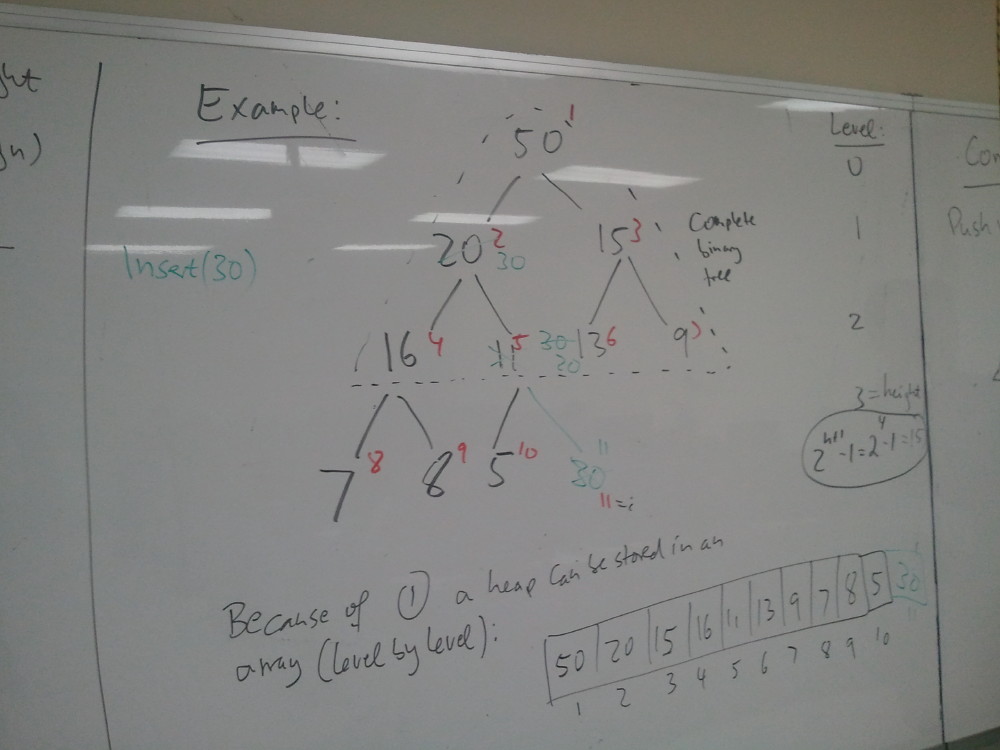 ght
gn)
Example:
50 1
Level:
0
20 2
30
15 3
1
Insert(30)
Complete
binary
tree
16 4
11 5
30
20
13 6
9 7
2
3 = height
2^h+1 - 1 = 2^4 - 1 = 15
7 8
8 9
5 10
30 11
11 = i
Because of ① a heap can be stored in an
array (level by level):
50 20 15 16 11 13 9 7 8 5 30
1 2 3 4 5 6 7 8 9 10
Con
Push